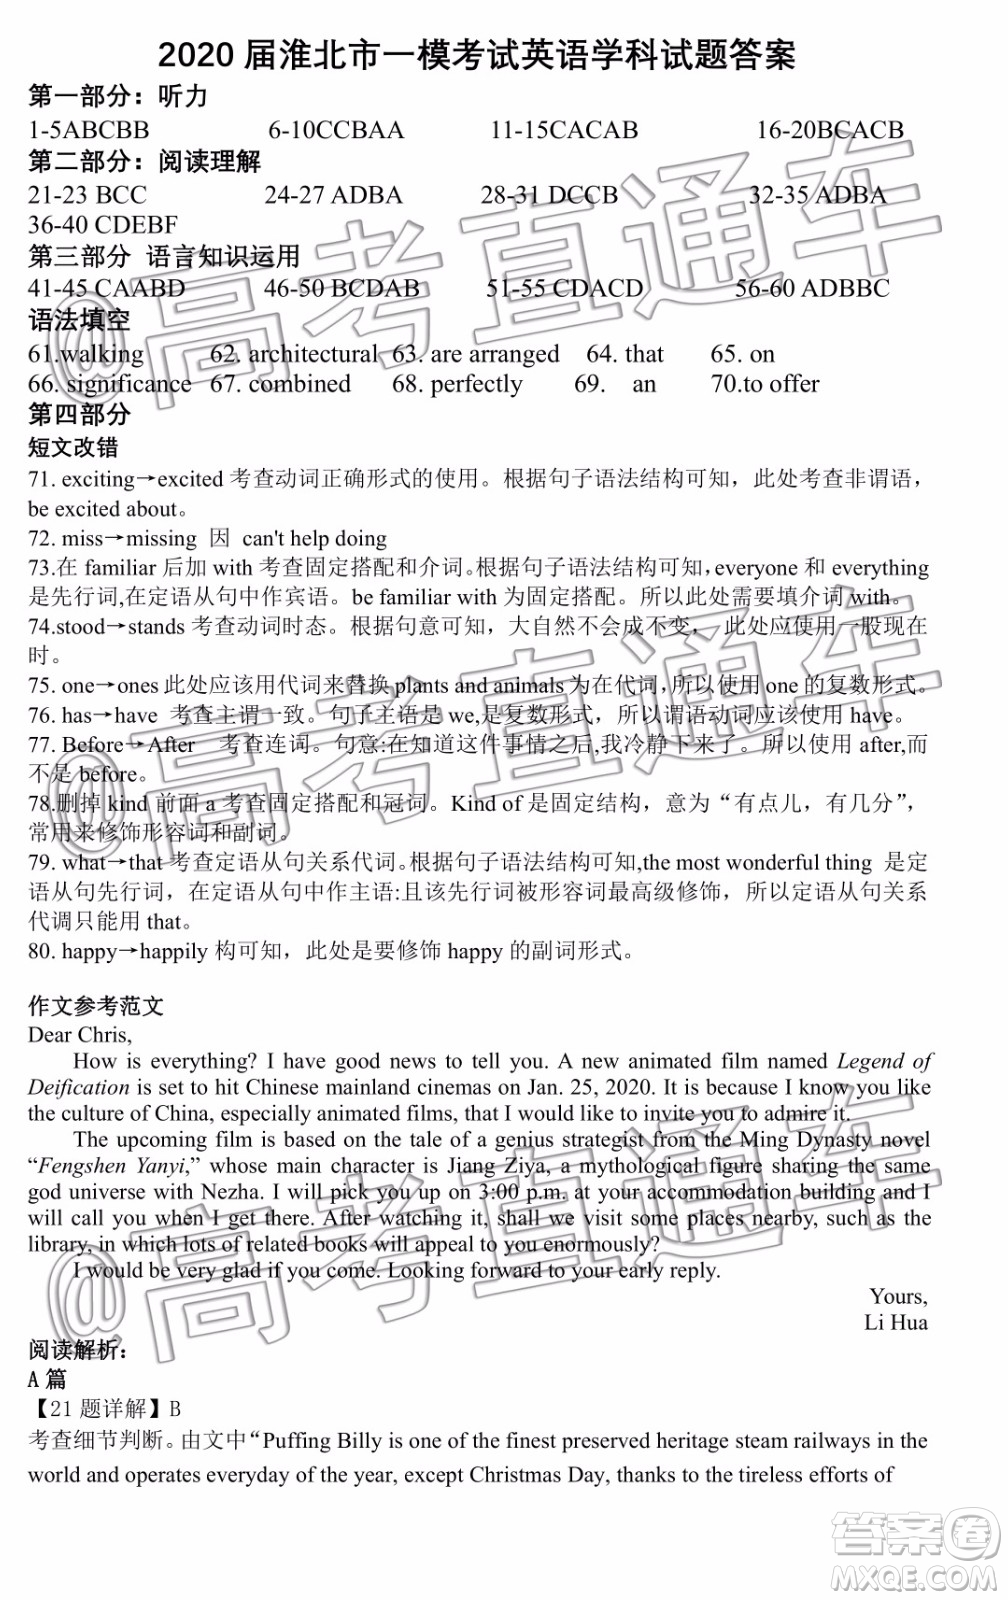 2020 届淮北市一模考试英语学科试题答案
第一部分：听力
1-5ABCBB 6-10CCBAA 11-15CACAB 16-20BCACB
第二部分：阅读理解
21-23 BCC 24-27 ADBA 28-31 DCCB 32-35 ADBA
36-40 CDEBF
第三部分 语言知识运用
41-45 CAABD 46-50 BCDAB 51-55 CDACD 56-60 ADBBC
语法填空
61.walking 62. architectural 63. are arranged 64. that 65. on
66. significance 67. combined 68. perfectly 69. an 70.to offer
第四部分
短文改错
71. exciting→excited 考查动词正确形式的使用。根据句子语法结构可知，此处考查非谓语，
be excited about。
72. miss→missing 因 can't help doing
73.在 familiar 后加 with 考查固定搭配和介词。根据句子语法结构可知，everyone 和 everything
是先行词,在定语从句中作宾语。be familiar with 为固定搭配。所以此处需要填介词 with。
74.stood→stands 考查动词时态。根据句意可知，大自然不会成不变， 此处应使用一般现在
时。
75. one→ones 此处应该用代词来替换 plants and animals 为在代词，所以使用 one 的复数形式。
76. has→have 考查主谓一致。句子主语是 we,是复数形式，所以谓语动词应该使用 have。
77. Before→After 考查连词。句意:在知道这件事情之后,我冷静下来了。所以使用 after,而
不是 before。
78.删掉 kind 前面 a 考查固定搭配和冠词。Kind of 是固定结构，意为“有点儿，有几分”，
常用来修饰形容词和副词。
79. what→that 考查定语从句关系代词。根据句子语法结构可知,the most wonderful thing 是定
语从句先行词，在定语从句中作主语:且该先行词被形容词最高级修饰，所以定语从句关系
代调只能用 that。
80. happy→happily 构可知，此处是要修饰 happy 的副词形式。
作文参考范文
Dear Chris,
How is everything? I have good news to tell you. A new animated film named Legend of
Deification is set to hit Chinese mainland cinemas on Jan. 25, 2020. It is because I know you like
the culture of China, especially animated films, that I would like to invite you to admire it.
The upcoming film is based on the tale of a genius strategist from the Ming Dynasty novel
“Fengshen Yanyi,” whose main character is Jiang Ziya, a mythological figure sharing the same
god universe with Nezha. I will pick you up on 3:00 p.m. at your accommodation building and I
will call you when I get there. After watching it, shall we visit some places nearby, such as the
library, in which lots of related books will appeal to you enormously?
I would be very glad if you come. Looking forward to your early reply.
Yours,
Li Hua
阅读解析：
A 篇
【21 题详解】B
考查细节判断。由文中“Puffing Billy is one of the finest preserved heritage steam railways in the
world and operates everyday of the year, except Christmas Day, thanks to the tireless efforts of
@高考直通车
@高考直通车
@高考直通车
答案圈
MXQE.COM